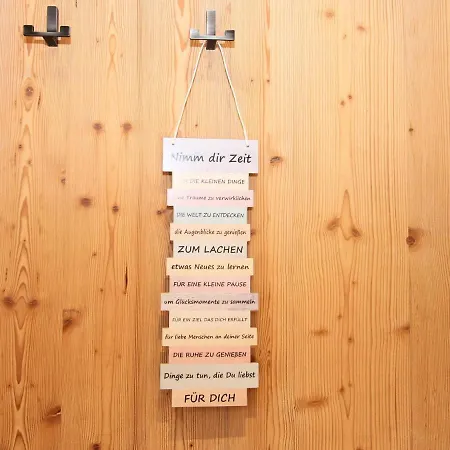 Nimm dir Zeit
DIE KLEINEN DINGE
Träume zu verwirklichen
DIE WELT ZU ENTDECKEN
die Augenblicke zu genießen
ZUM LACHEN
etwas Neues zu lernen
FÜR EINE KLEINE PAUSE
um Glücksmomente zu sammeln
FÜR EIN ZIEL DAS DICH ERFÜLLT
für liebe Menschen an deiner Seite
DIE RUHE ZU GENIEßEN
Dinge zu tun, die Du liebst
FÜR DICH